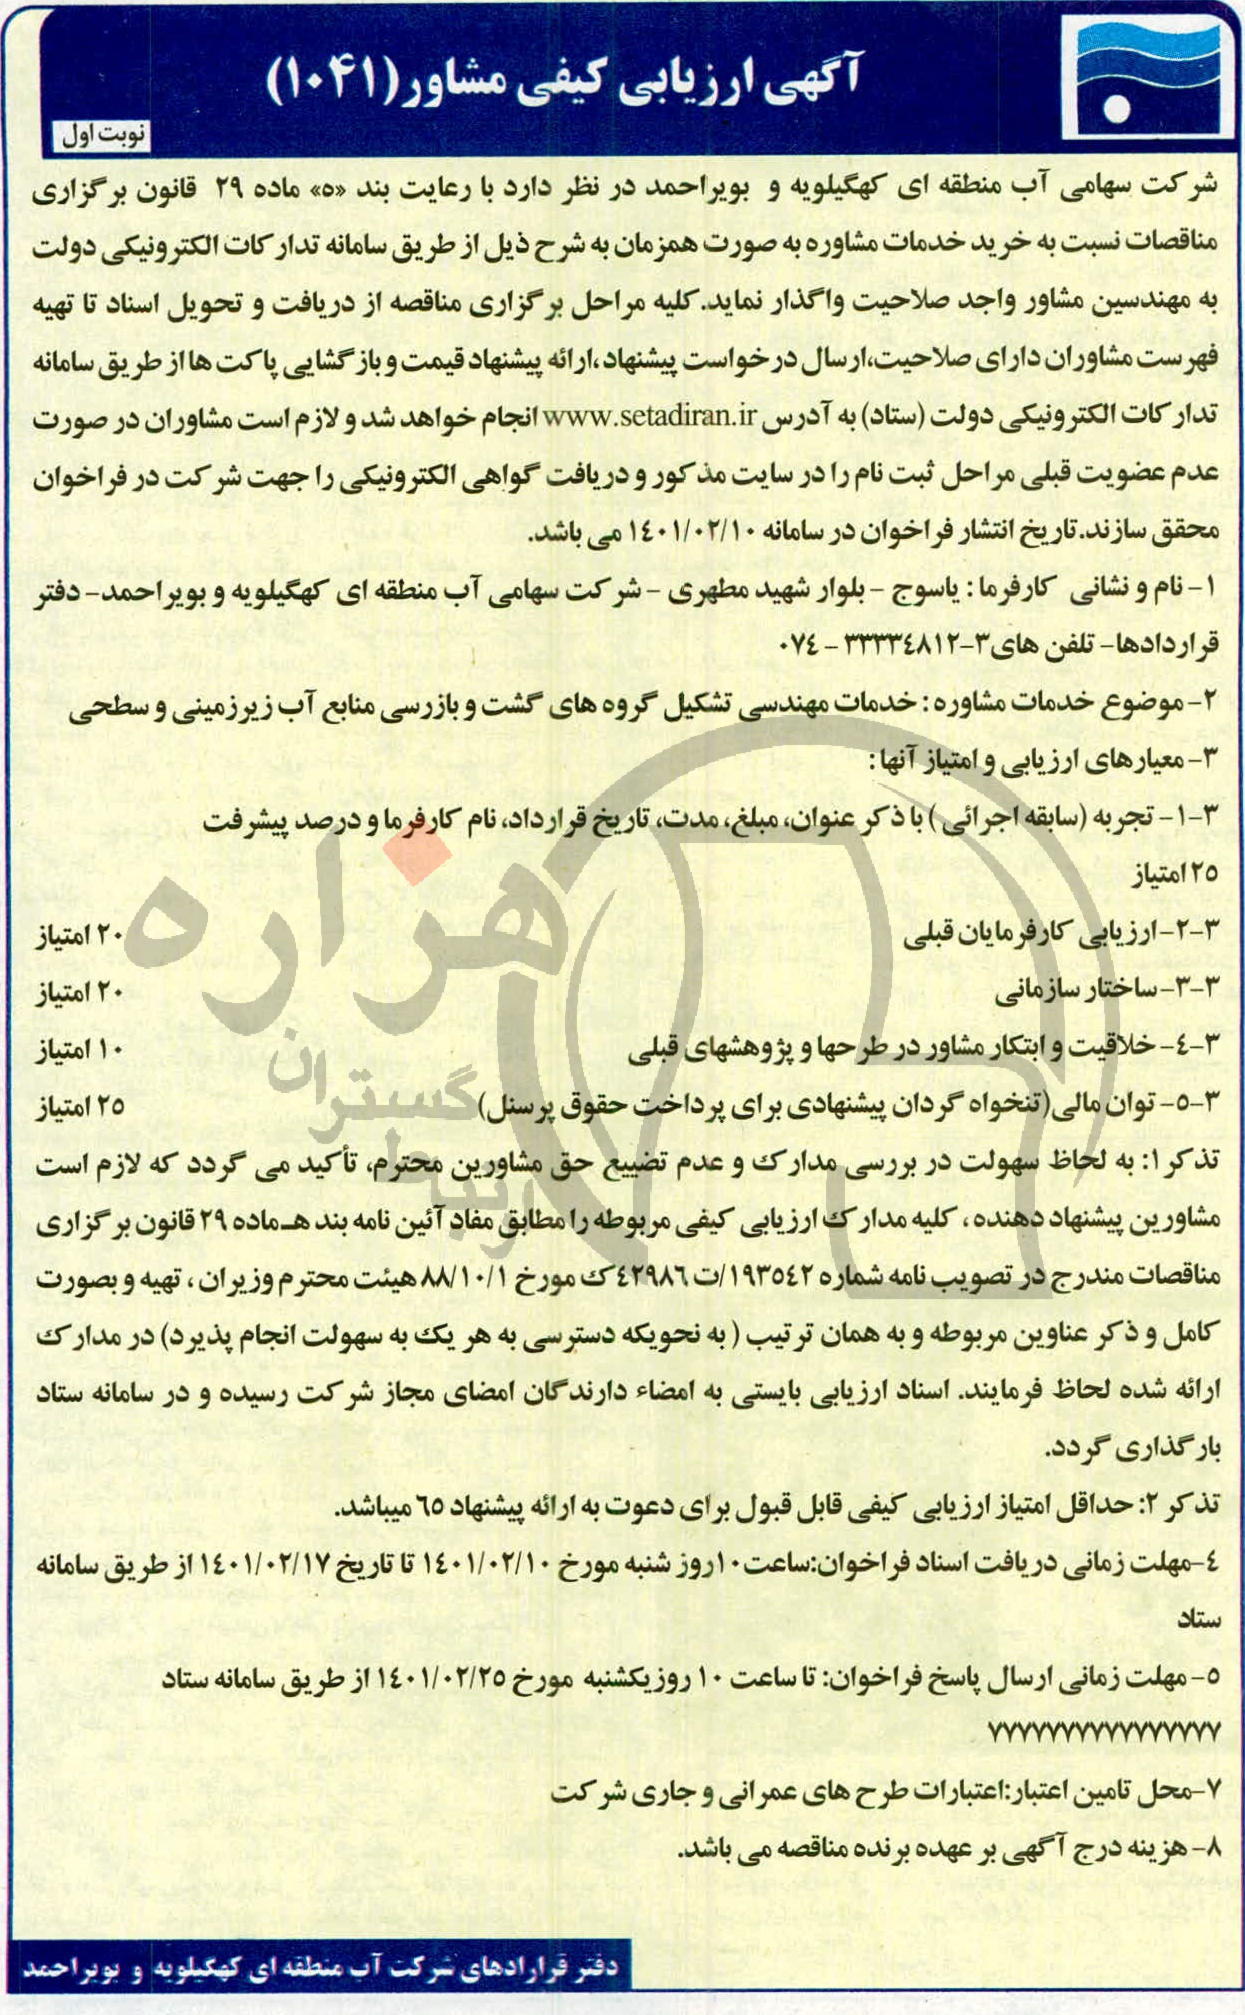 آگهی ارزیابی کیفی مشاور(۱۰۴۱)
نوبت اول
شرکت سهامی آب منطقه ای کهگیلویه و بویراحمد در نظر دارد با رعایت بند «ه» ماده ۲۹ قانون برگزاری
مناقصات نسبت به خرید خدمات مشاوره به صورت همزمان به شرح ذیل از طریق سامانه تدارکات الکترونیکی دولت
به مهندسین مشاور واجد صلاحیت واگذار نماید.کلیه مراحل برگزاری مناقصه از دریافت و تحویل اسناد تا تهیه
فهرست مشاوران دارای صلاحیت،ارسال درخواست پیشنهاد،ارائه پیشنهاد قیمت و بازگشایی پاکت ها از طریق سامانه
تدارکات الکترونیکی دولت (ستاد) به آدرس www.setadiran.ir انجام خواهد شد و لازم است مشاوران در صورت
عدم عضویت قبلی مراحل ثبت نام را در سایت مذکور و دریافت گواهی الکترونیکی را جهت شرکت در فراخوان
محقق سازند.تاریخ انتشار فراخوان در سامانه ۱٤۰۱/۰۲/۱۰ می باشد.
۱- نام و نشانی کارفرما : یاسوج - بلوار شهید مطهری - شرکت سهامی آب منطقه ای کهگیلویه و بویراحمد- دفتر
قراردادها- تلفن های۳-۳۳۳۳٤۸۱۲ - ۰۷٤
۲- موضوع خدمات مشاوره : خدمات مهندسی تشکیل گروه های گشت و بازرسی منابع آب زیرزمینی و سطحی
۳- معیارهای ارزیابی و امتیاز آنها :
۳-۱- تجربه (سابقه اجرائی ) با ذکر عنوان، مبلغ، مدت، تاریخ قرارداد، نام کارفرما و درصد پیشرفت
۲٥ امتیاز
۳-۲-ارزیابی کارفرمایان قبلی ۲۰ امتیاز
۳-۳-ساختار سازمانی ۲۰ امتیاز
۳-٤- خلاقیت و ابتکار مشاور در طرحها و پژوهشهای قبلی ۱۰ امتیاز
۳-٥- توان مالی(تنخواه گردان پیشنهادی برای پرداخت حقوق پرسنل) ۲٥ امتیاز
تذکر۱: به لحاظ سهولت در بررسی مدارک و عدم تضییع حق مشاورین محترم، تأکید می گردد که لازم است
مشاورین پیشنهاد دهنده ، کلیه مدارک ارزیابی کیفی مربوطه را مطابق مفاد آئین نامه بند هـ ماده ۲۹ قانون برگزاری
مناقصات مندرج در تصویب نامه شماره ۱۹۳٥٤۲/ت ٤۲۹۸٦ک مورخ ۸۸/۱۰/۱ هیئت محترم وزیران ، تهیه و بصورت
کامل و ذکر عناوین مربوطه و به همان ترتیب ( به نحویکه دسترسی به هر یک به سهولت انجام پذیرد) در مدارک
ارائه شده لحاظ فرمایند. اسناد ارزیابی بایستی به امضاء دارندگان امضای مجاز شرکت رسیده و در سامانه ستاد
بارگذاری گردد.
تذکر ۲: حداقل امتیاز ارزیابی کیفی قابل قبول برای دعوت به ارائه پیشنهاد ٦٥ میباشد.
٤-مهلت زمانی دریافت اسناد فراخوان:ساعت۱۰روز شنبه مورخ ۱٤۰۱/۰۲/۱۰ تا تاریخ ۱٤۰۱/۰۲/۱۷ از طریق سامانه
ستاد
٥- مهلت زمانی ارسال پاسخ فراخوان: تا ساعت ۱۰ روز یکشنبه مورخ ۱٤۰۱/۰۲/۲٥ از طریق سامانه ستاد
۷۷۷۷۷۷۷۷۷۷۷۷۷۷۷۷
۷-محل تامین اعتبار:اعتبارات طرح های عمرانی و جاری شرکت
۸- هزینه درج آگهی بر عهده برنده مناقصه می باشد.
دفتر قراردادهای شرکت آب منطقه ای کهگیلویه و بویراحمد
هزاره
گستران